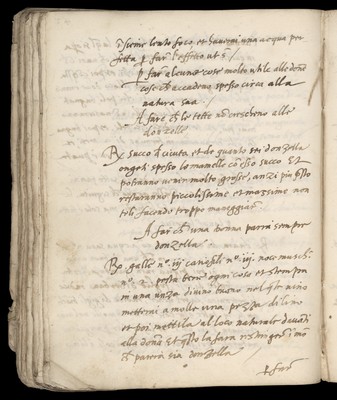 insieme lento foco et haverai una acqua per
fetta p far l'effetto ut s.
p far alcune cose molto utile alle done
cose ch accadeno spesso circa alla
natura sua
A fare ch le tette no creschano alle
donzelle
Rx succo d cicuta et de quanto sei donzella
ongeti spesso le mamelle co esso succo Et
potranno venir molto grosse, anzi p qsto
restaranno piccolissime et massime non
toli facendo troppo maneggiar
A far ch una donna parrà sempre
donzella
Rx galle nº. iij nº. iij. noce muschi
nº. pesta bene ogni cosa et stempra
in una vino buono nel qle vino
metterai a mollo una pezza di lino
et poi mettila al loco naturale
alla donna Et qsto la farà restringere i mo
ch parerà sia donzella
p far